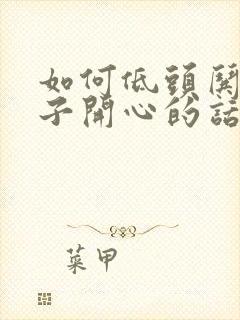 如何低頭
子開心的話
菜甲